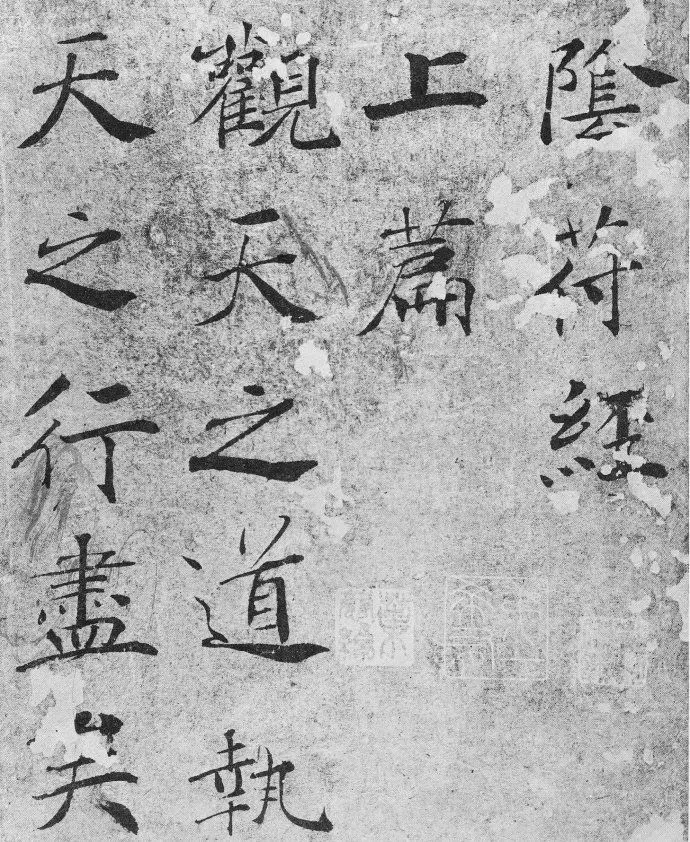 陰符經
上篇
觀天之道執
天之行盡矣